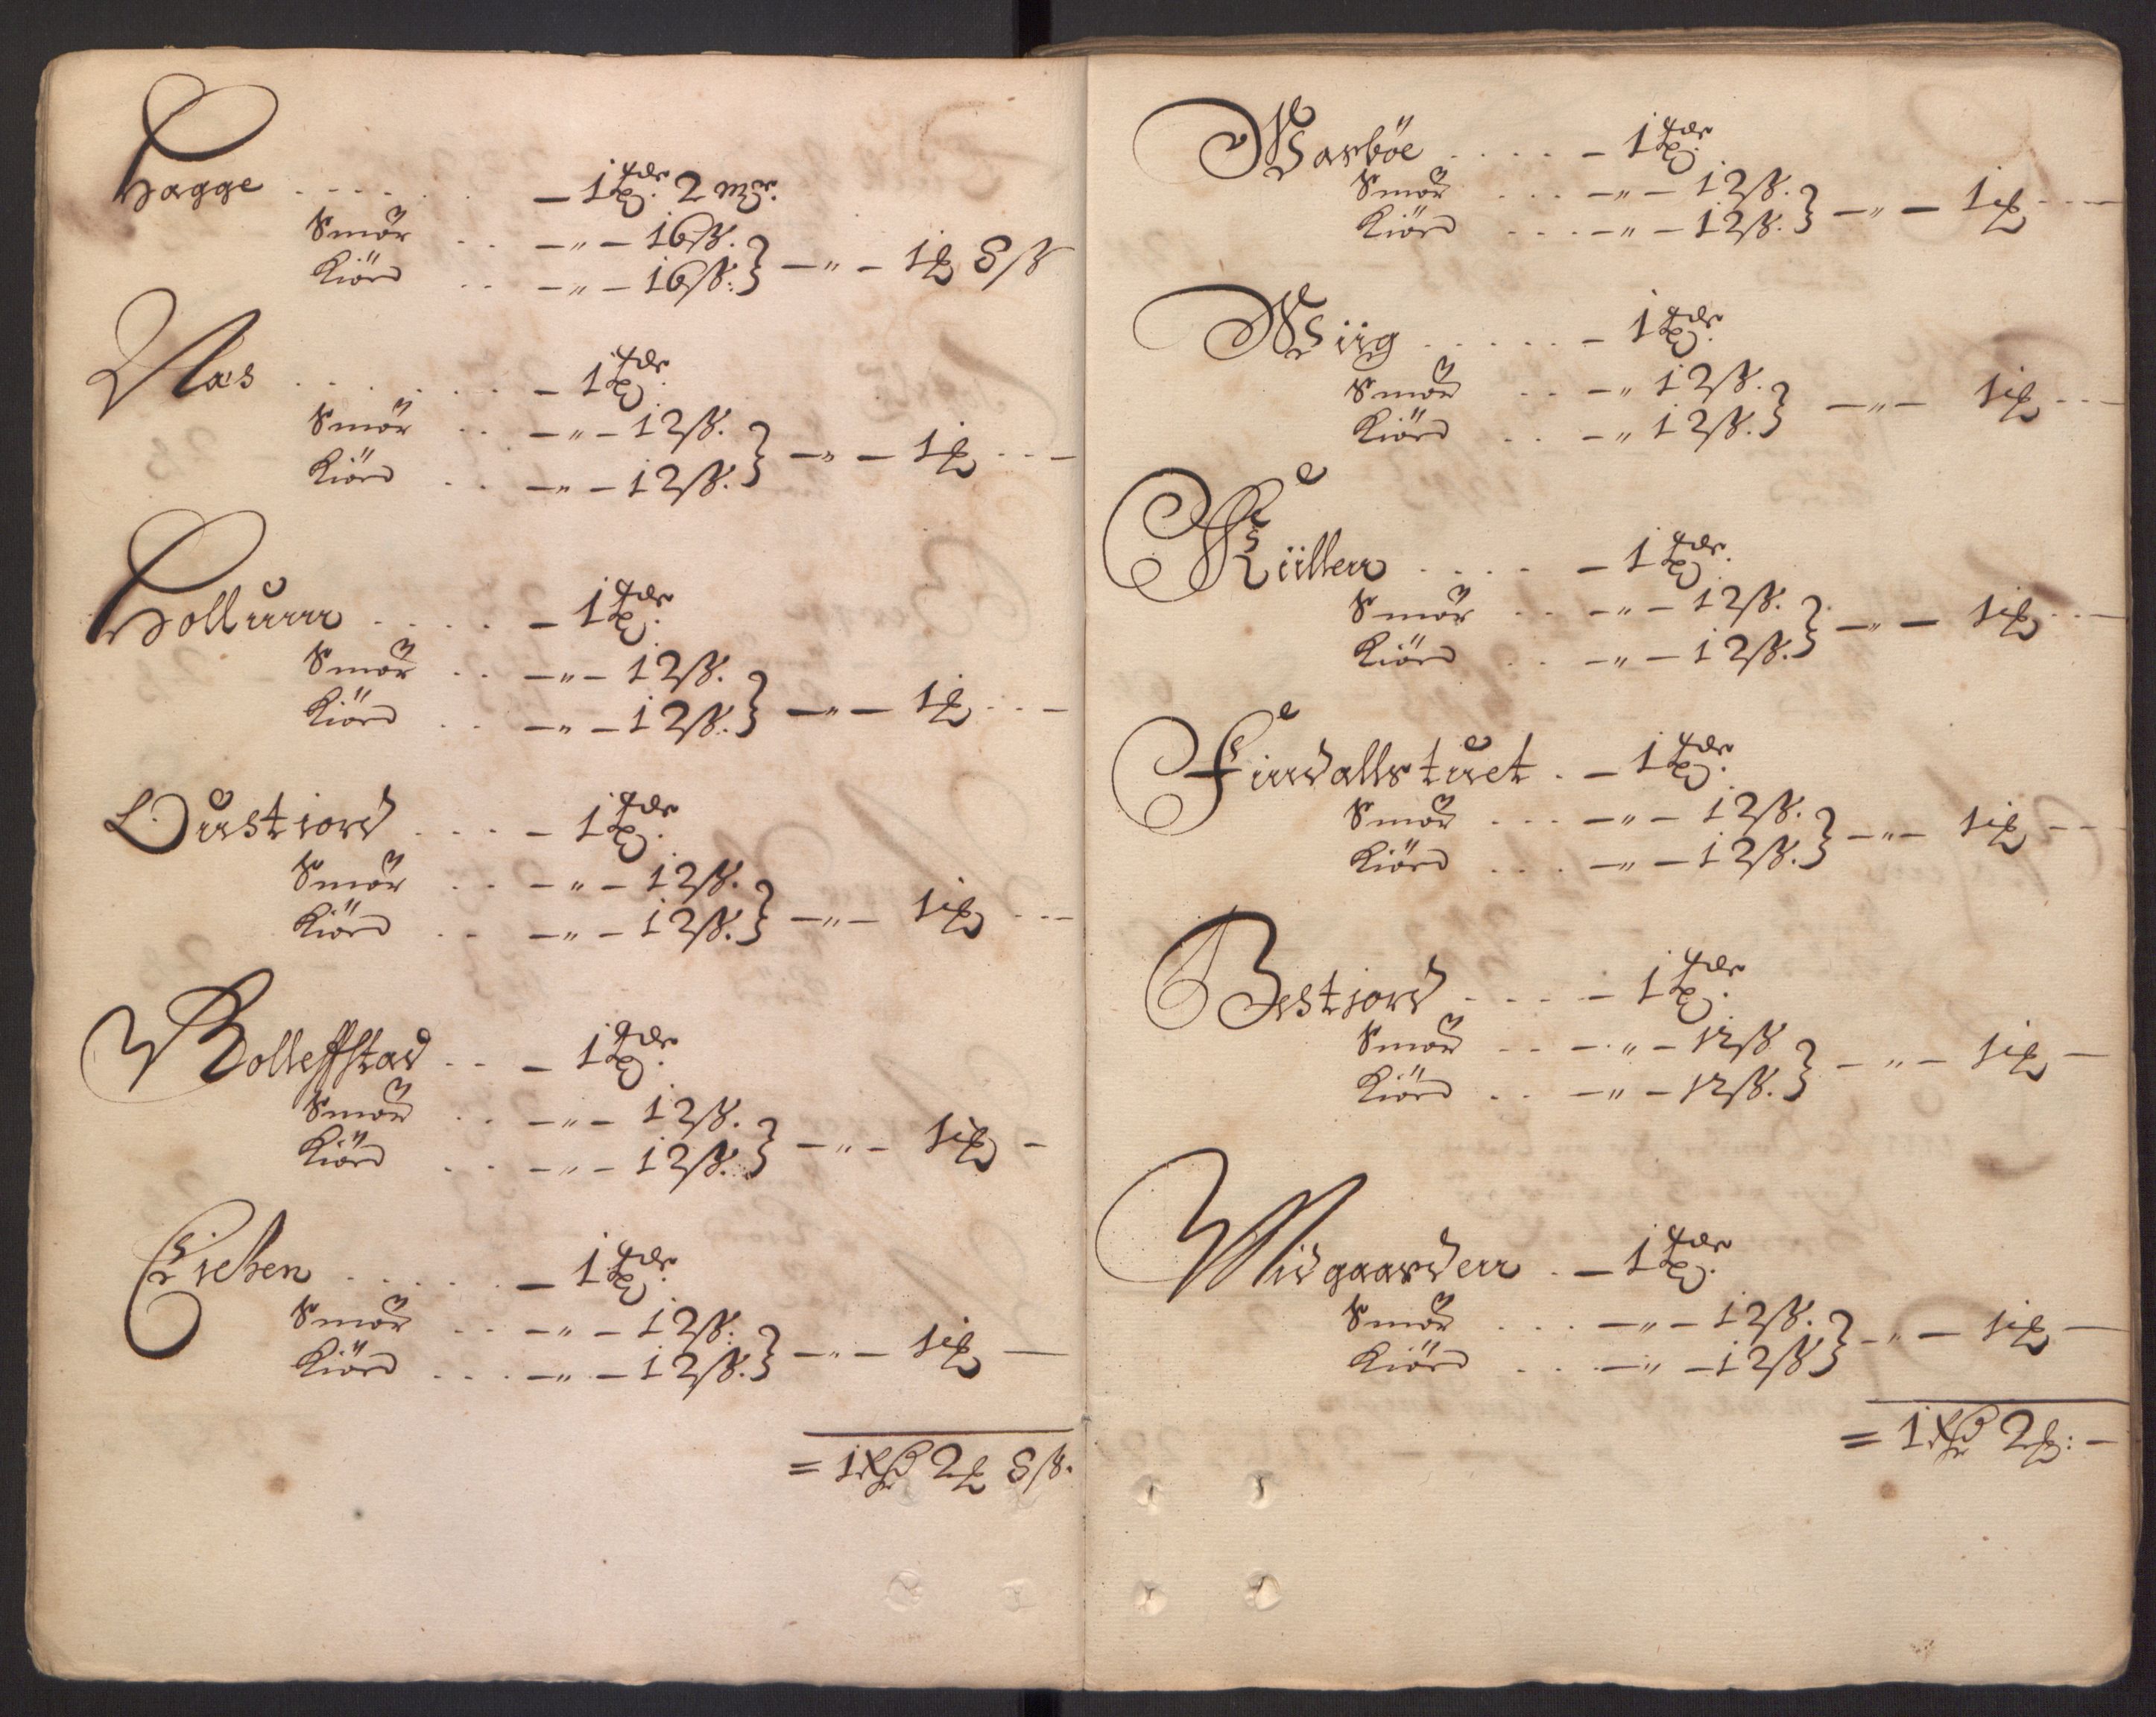 Hagge . . . . . . — 1 tdr. 2 mr.
Smör . . — „ — 16 ß.
Kiörd . . — „ — 16 ß. } — „ — 1 # 8 ß
Næs . . . . . . — 1 tdr.
Smör . . — „ — 12 ß.
Kiörd . . — „ — 12 ß. } — „ — 1 # . . —
Hollunn . . . . — 1 tdr.
Smör . . — „ — 12 ß.
Kiörd . . — „ — 12 ß. } — „ — 1 # . . —
Oustiord . . . . — 1 tdr.
Smör . . — „ — 12 ß.
Kiörd . . — „ — 12 ß. } — „ — 1 # . . —
Rolleffstad . . — 1 tdr.
Smör . . — „ — 12 ß.
Kiörd . . — „ — 12 ß. } — „ — 1 # —
Eichen . . . . . — 1 tdr.
Smör . . — „ — 12 ß.
Kiörd . . . — „ — 12 ß. } — „ — 1 # —
= 1 2 # 8 ß.
Wasböe . . . . — 1 tdr.
Smör . . . — „ — 12 ß.
Kiörd . . . — „ — 12 ß. } — „ — 1 # . . —
Wiig . . . . . — 1 tdr.
Smör . . — „ 12 ß.
Kiörd . . — „ 12 ß. } — „ — 1 # . . —
. . . . — 1 tdr.
Smör . . — „ — 12 ß.
Kiörd . . — „ — 12 ß. } — „ — 1 # . . —
Findallstuet . — 1 tdr.
Smör . . . — „ — 12 ß.
Kiörd . . . — „ — 12 ß. } — „ — 1 # — —
Bestiord . . . . — 1 tdr.
Smör . . — „ — 12 ß
Kiörd . . — „ — 12 ß. } — „ — 1 # —
Midgaarden . — 1 tdr.
Smör . . . — „ — 12 ß.
Kiörd . . . — „ — 12 ß } — „ — 1 # —
= 1 2 #: —